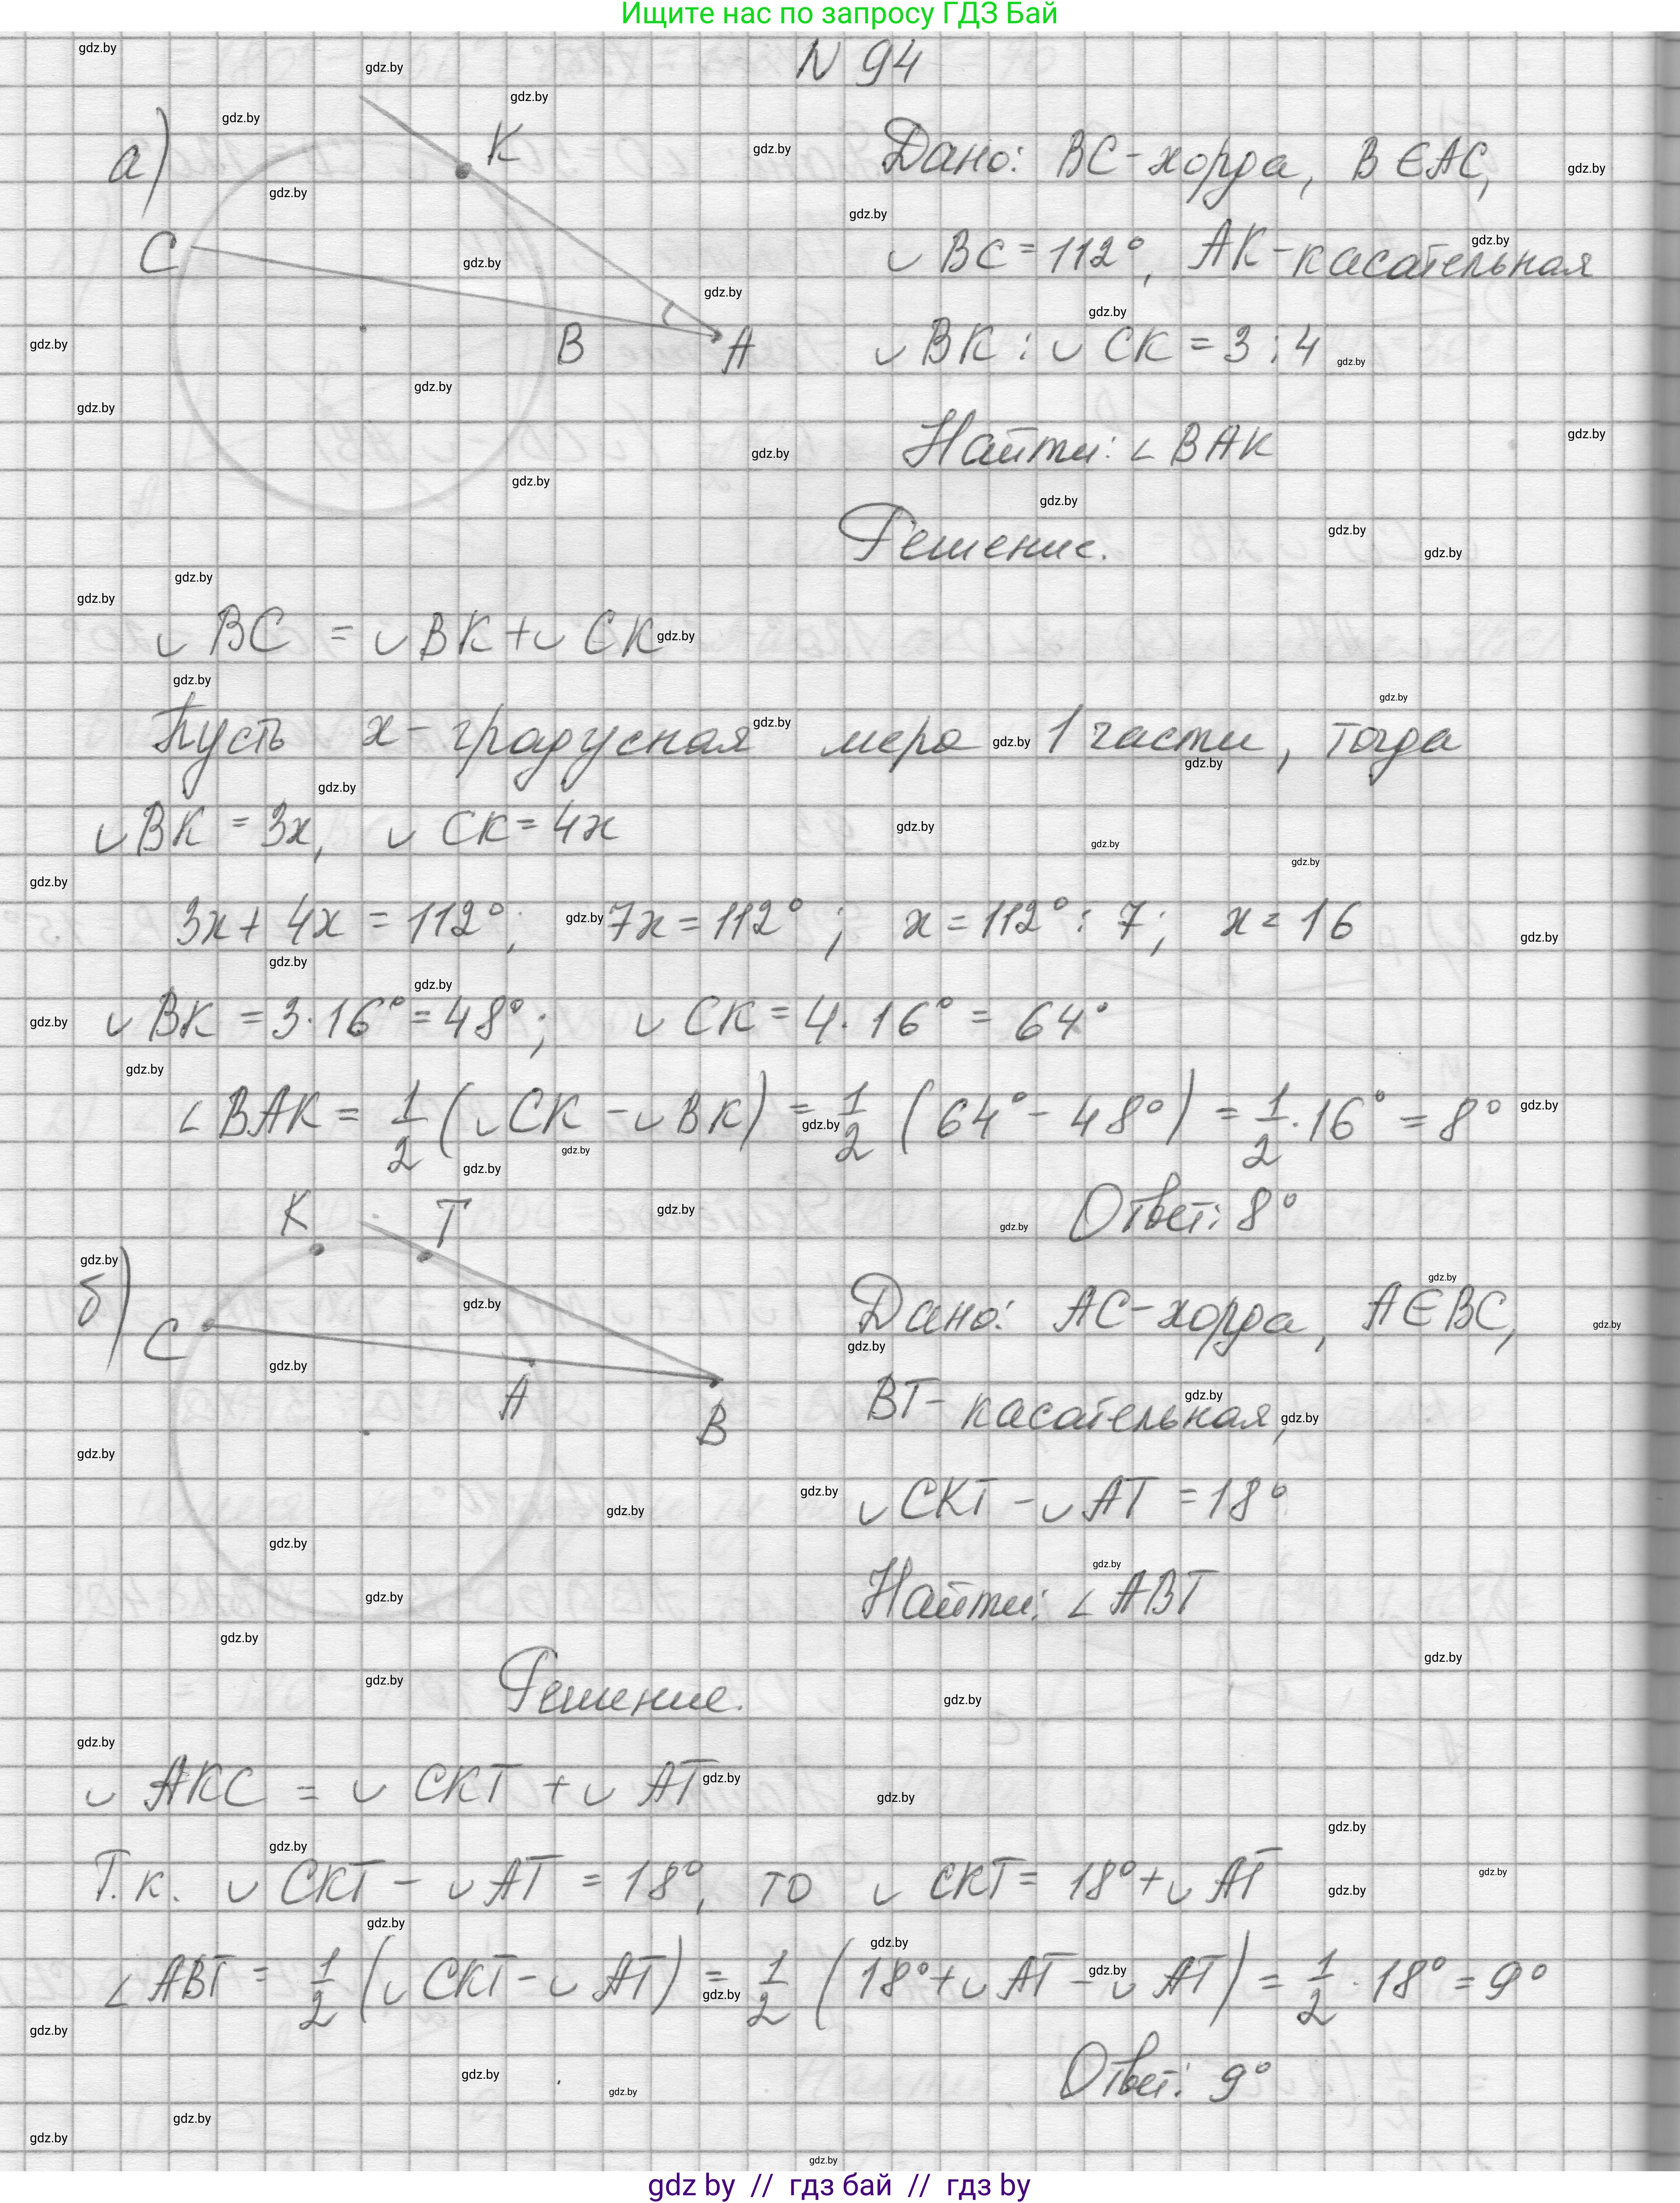 Ищите нас по запросу ГДЗ Бай
N 94
а)
K
C
B
A
Дано: BC - хорда, B ∈ AC,
◡ BC = 112°, AK - касательная
◡ BK : ◡ CK = 3 : 4
Найти: ∠ BAK
Решение.
◡ BC = ◡ BK + ◡ CK
Пусть x - градусная мера 1 части, тогда
◡ BK = 3x, ◡ CK = 4x
3x + 4x = 112°; 7x = 112°; x = 112° : 7; x = 16
◡ BK = 3 · 16° = 48°; ◡ CK = 4 · 16° = 64°
∠ BAK = 1/2 (◡ CK - ◡ BK) = 1/2 (64° - 48°) = 1/2 · 16° = 8°
Ответ: 8°
б)
K
T
C
A
B
Дано: AC - хорда, A ∈ BC,
BT - касательная,
◡ CKT - ◡ AT = 18°
Найти: ∠ ABT
Решение.
◡ AKC = ◡ CKT + ◡ AT
Т.к. ◡ CKT - ◡ AT = 18°, то ◡ CKT = 18° + ◡ AT
∠ ABT = 1/2 (◡ CKT - ◡ AT) = 1/2 (18° + ◡ AT - ◡ AT) = 1/2 · 18° = 9°
Ответ: 9°
gdz by // гдз бай // гдз by